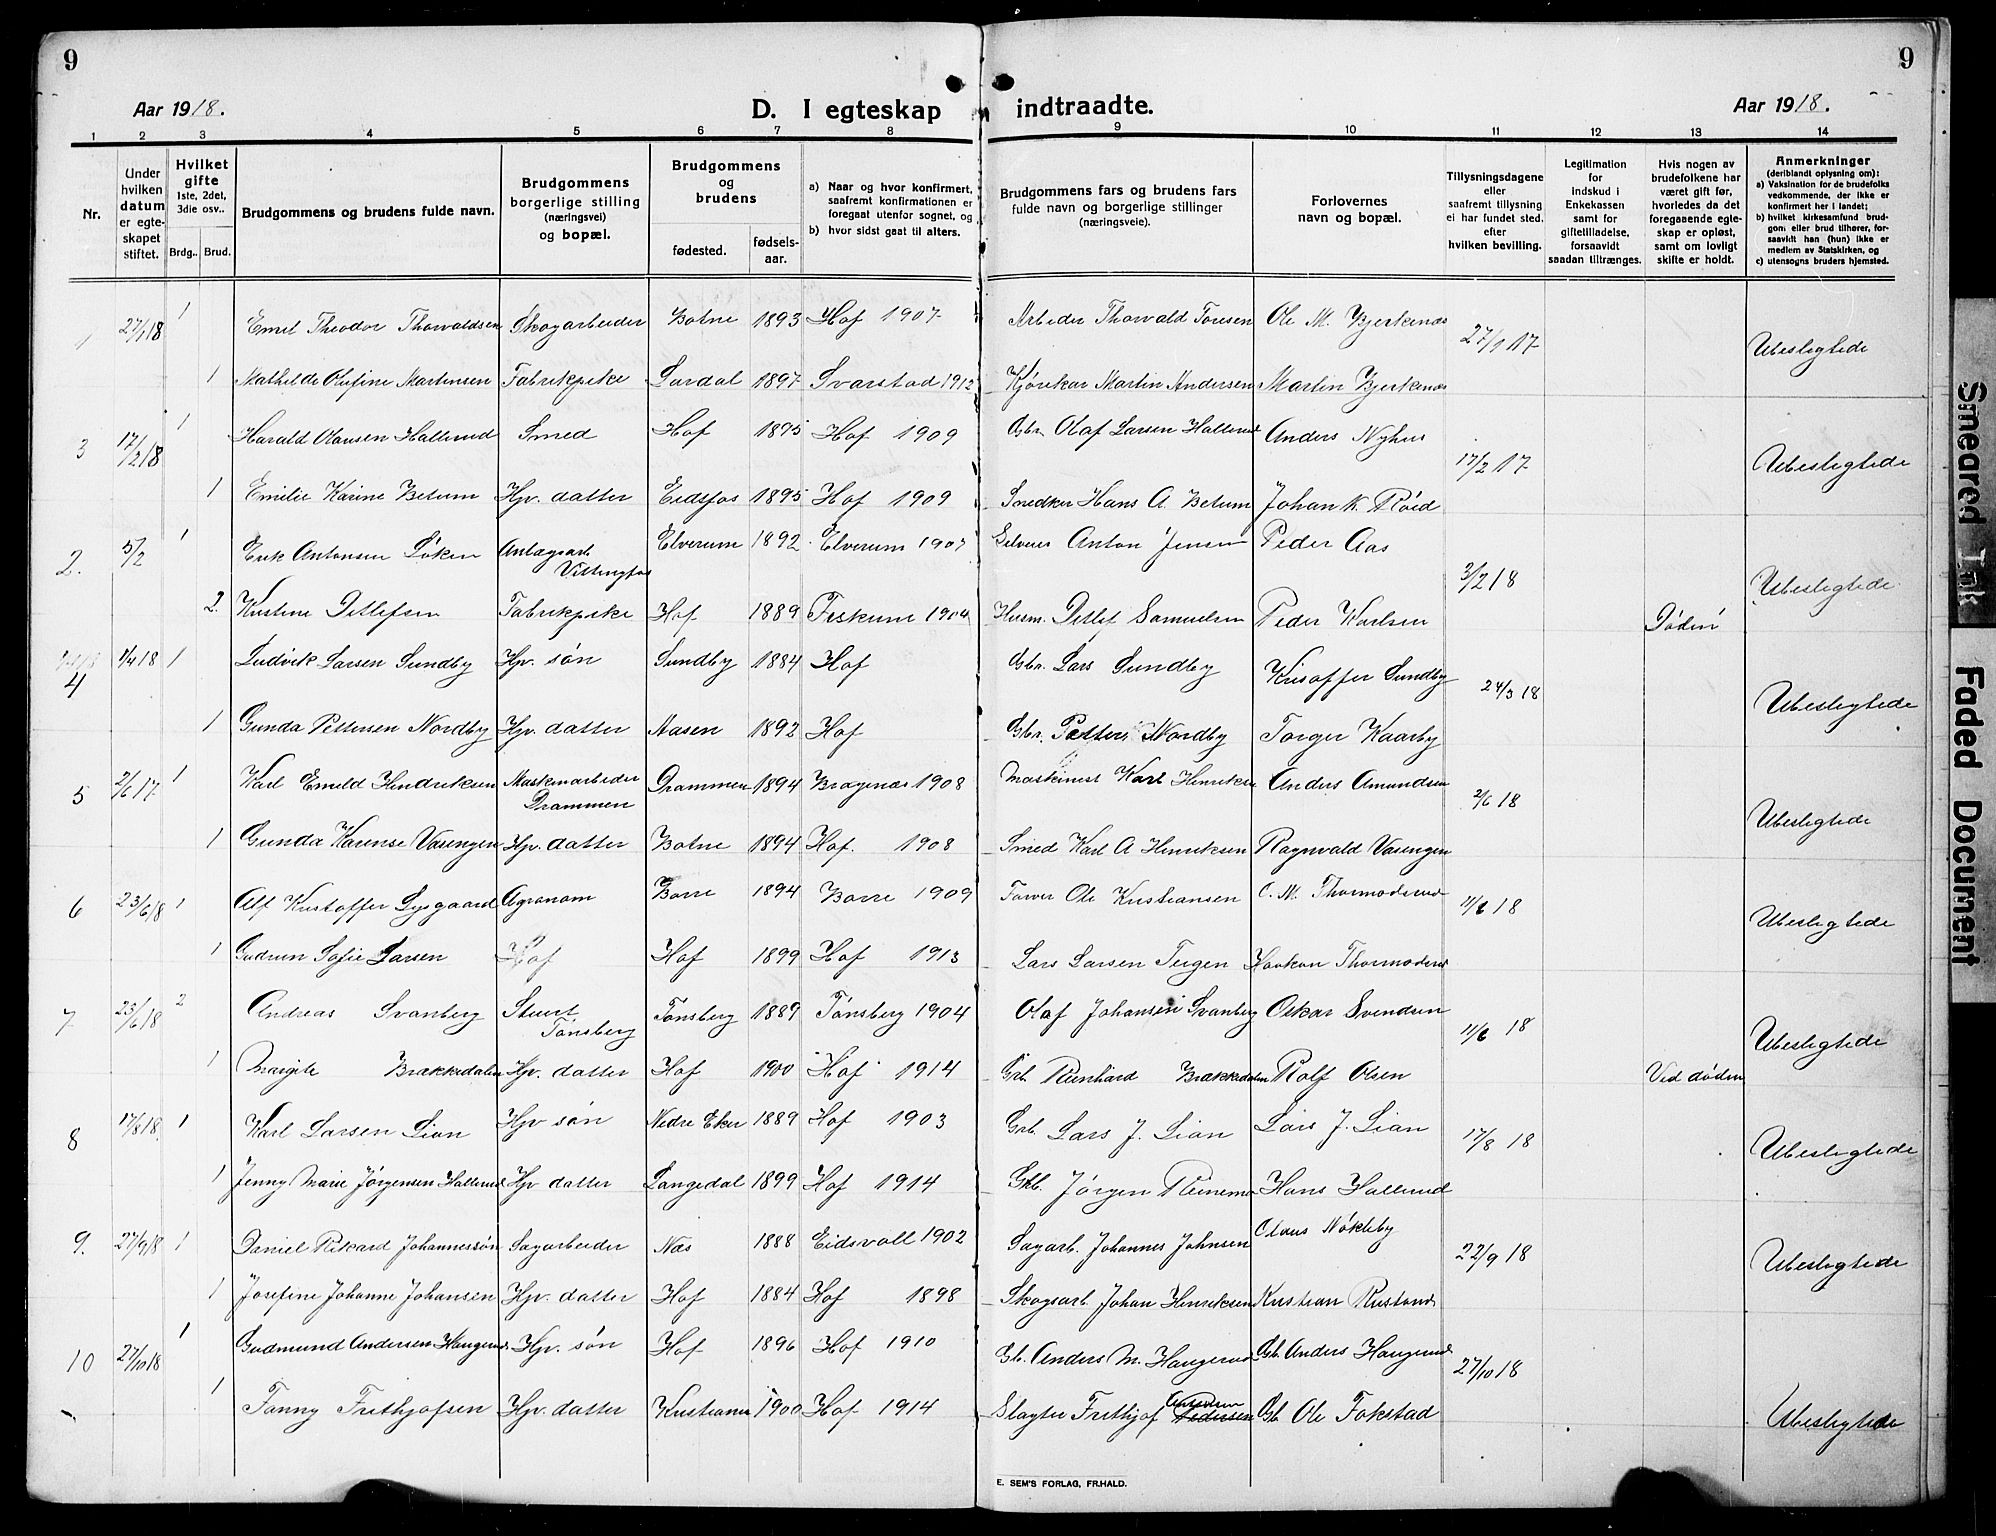 9
9
Aar 1918.
D. I egteskap indtraadte.
Aar 1918.
1 2 3 4 5 6 7 8 9 10 11 12 13 14
Nr.
Under hvilken datum er egteskapet stiftet.
Hvilket gifte 1ste, 2det, 3die osv..
Brdg.. Brud.
Brudgommens og brudens fulde navn.
Brudgommens borgerlige stilling (næringsvei) og bopæl.
Brudgommens og brudens
fødested. fødsels-aar.
a) Naar og hvor konfirmert, saafremt konfirmationen er foregaat utenfor sognet, og
b) hvor sidst gaat til alters.
Brudgommens fars og brudens fars fulde navn og borgerlige stillinger (næringsveie).
Forlovernes navn og bopæl.
Tillysningsdagene eller saafremt tillysning ei har fundet sted. efter hvilken bevilling.
Legitimation for indskud i Enkekassen samt for giftetilladelse, forsaavidt saadan tiltrænges.
Hvis nogen av brudefolkene har været gift før, hvorledes da det foregaaende egteskap er opløst, samt om lovligt skifte er holdt.
Anmerkninger (deriblandt oplysning om):
a) Vaksination for de brudefolks vedkommende, der ikke er konfirmert her i landet;
b) hvilket kirkesamfund brudgom eller brud tilhører, forsaavidt han (hun) ikke er medlem av Statskirken, og
c) utensogns bruders hjemsted.
1 27/1 18 1 Emil Theodor Thorvaldsen Skogarbeider Botne 1893 Hof 1907 Arbeider Thorvald Toresen Ole M. Bjerkenæs 27/1 17 Ubeslegtede
1 Mathilde Olufine Martinsen Fabrikpike Lardal 1897 Svarstad 1912 Kjørekar Martin Andersen Martin Bjerkenæs
3 17/2 18 1 Harald Olausen Hallerud Smed Hof 1895 Hof 1909 Gbr. Olaf Larsen Hallerud Anders Nyhus 17/2 17 Ubeslegtede
1 Emilie Karine Betum Hp. datter Eidsfos 1895 Hof 1909 Snedker Hans A. Betum Johan K. Røed
2. 5/2 1 Erik Antonsen Løken Anlægsarb. Vittingfos Elverum 1892 Elverum 1907 Selveier Anton Jensen Peder Aas 3/2 18 Ubeslegtede
2. Kristine Detlefsen Fabrikpike Hof 1889 Fiskum 1904 Husm. Detlef Samuelsen Peder Karlsen Døden
4 1/4 18 1 Ludvik Larsen Sundby Hp. søn Sundby 1884 Hof Gbr. Lars Sundby Krisoffer Sundby 24/3 18 Ubeslegtede
1 Gunda Pettersen Nordby Hp. datter Aasen 1892 Hof Gbr. Petter Nordby Torger Kaarby
5 2/6 17 1 Karl Emeld Hendriksen Maskinarbeider Drammen Drammen 1894 Bragenæs 1908 Maskinist Karl Henriksen Anders Amundsen 2/6 18 Ubeslegtede
1 Gunda Karense Vasengen Hp. datter Botne 1894 Hof. 1908 Smed Karl A Henriksen Ragnvald Vasengen
6 23/6 18 1 Alf Kristoffer Lysgaard Agronom Borre 1894 Borre 1909 Farver Ole Kristiansen C. M. Thormodsrud 11/6 18 Ubeslegtede
1 Gudrun Sofie Larsen Hof Hof 1899 Hof 1913 Lars Larsen Teigen Haakon Thormodsrud
7 23/6 18 2 Andreas Svanberg Stuert Tønsberg Tønsberg 1889 Tønsberg 1904 Olaf Johansen Svanberg Oskar Svendsen 11/6 18 Ubeslegtede
1 Margit Brækkedalen Hp. datter Hof 1900 Hof 1914 Grb. Reinhard Brækkedalen Rolf Olsen Ved døden
8 17/8 18. 1 Karl Larsen Lian Hp søn Nedre Eker 1889 Hof 1903 Grb. Lars J. Lian Lars J. Lian 17/8 18 Ubeslegtede
1 Jenny Marie Jørgensen Hallerud Hp datter Langedal 1899 Hof 1914 Gkb. Jørgen Hans Hallerud
9. 27/9 18 1 Daniel Rikard Johannessøn Sagarbeider Næs 1888 Eidsvoll 1902 Sagarb. Johannes Johnsen Olaus Nøkleby 22/9 18 Ubeslegtede
1 Josefine Johanne Johansen Hp. datter Hof 1884 Hof 1898 Skogsarb. Johan Henriksen Kristian Rustand
10 27/10 18 1 Gudmund Andersen Haugerud Hp. søn Hof 1896 Hof 1910 Gb. Anders M. Haugerud Gb. Anders Haugerud 27/10 18
1 Fanny Frithjofsen Hp. datter Kristiania 1900 Hof 1914 Slagter Frithjof Pedersen Gb Ole Fokstad Ubeslegtede
E. SEM'S FORLAG, FR.HALD.
Smeared Ink
Faded Document